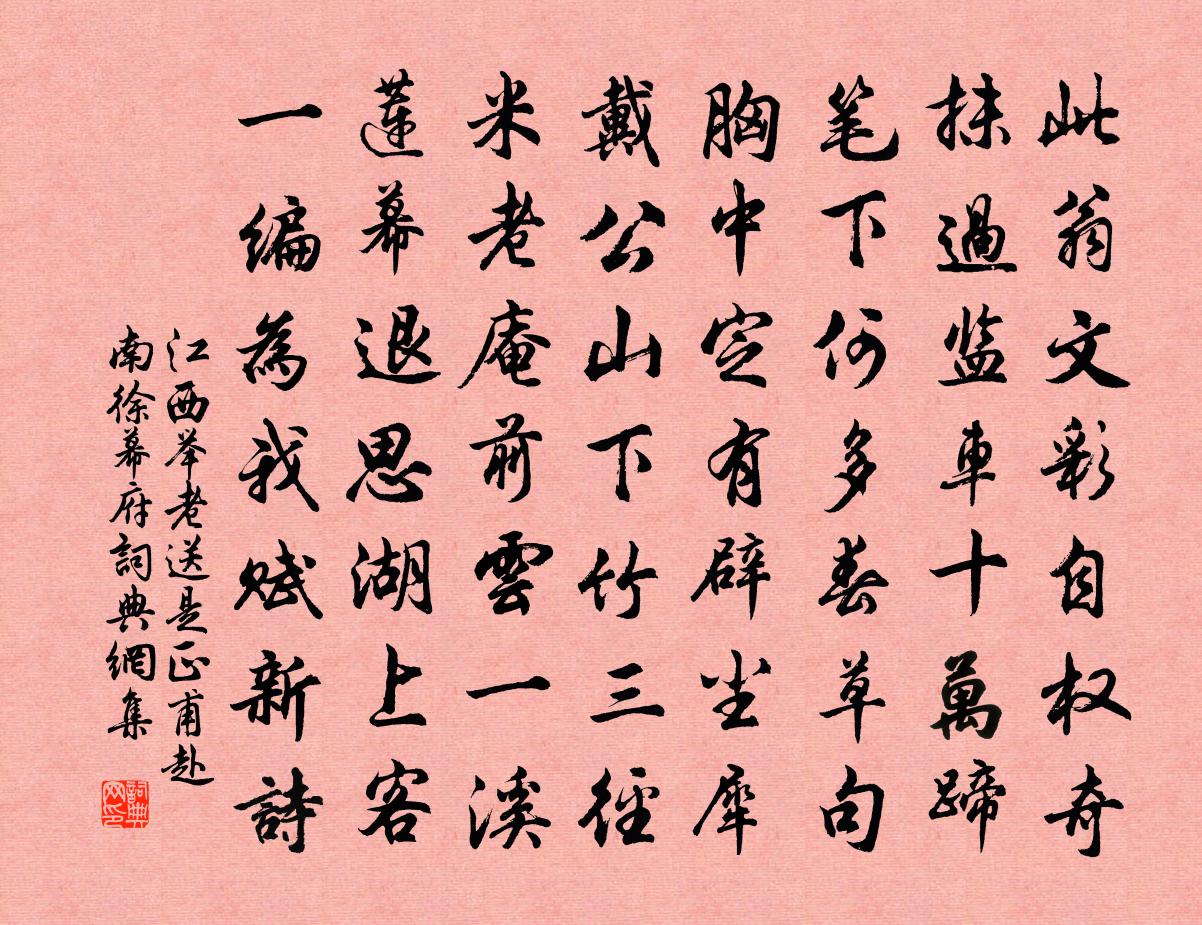 此翁文彩自权奇
抹過监車十萬蹄
笔下何多春草句
胸中定有辟尘犀
戴公山下竹三径
米老庵前雲一溪
蓮幕退思湖上客
一编為我赋新詩
江西举老送是正甫赴
南徐幕府詞典網集
詞典网印